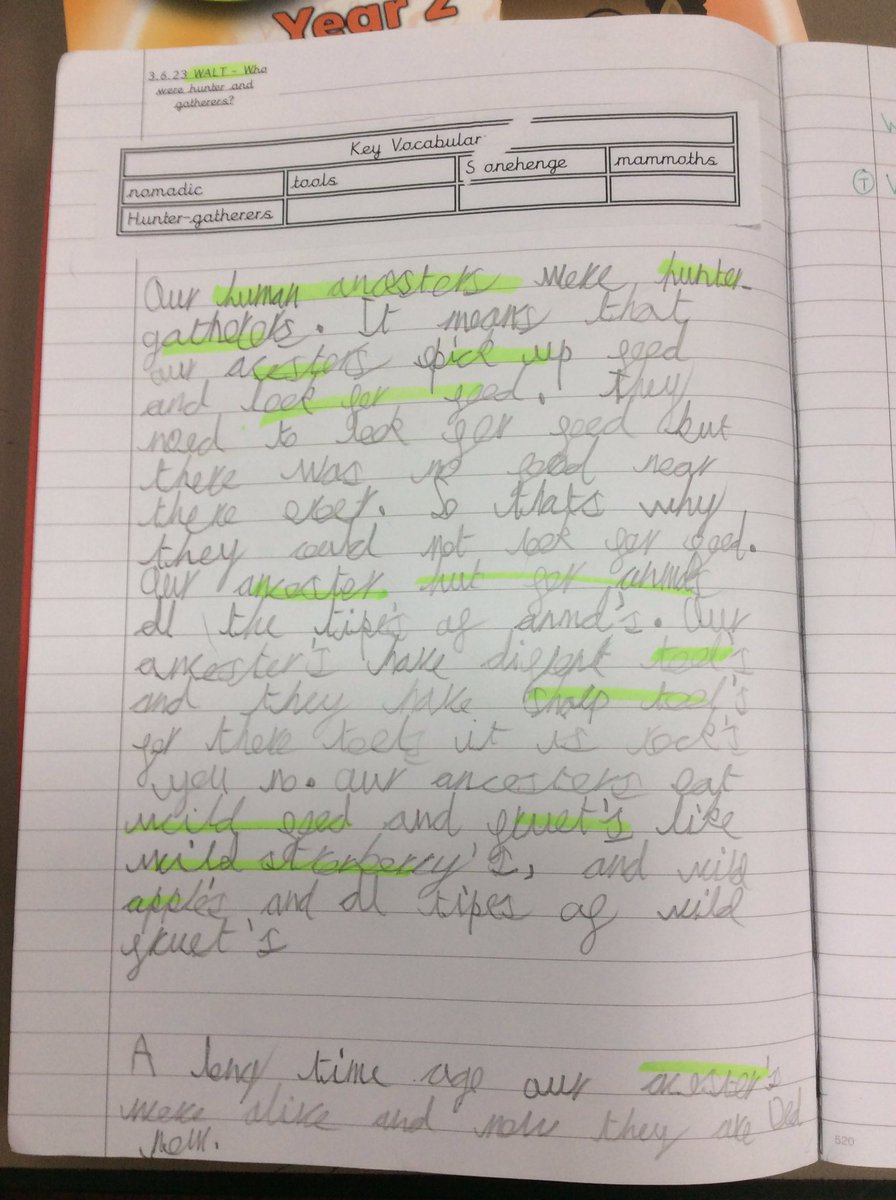 Year 2
3.6.23 WALT - Who
were hunter and
gatherers?
Key Vocabular
nomadic tools S onehenge mammoths
Hunter-gatherers
Our human ancesters were hunter-
gatherers. It means that
our acesters pick up food
and look for food. They
need to look for food but
there was no food near
there ever. So thats why
they could not look for food.
Our ancester hut for
all the tipe's of Our
ancester's have tool's
and they have sharp tool's
for there tools it is rock's
you no. our ancesters eat
wild food and fruet's like
wild storberry's, and wild
apple's and all tipes of wild
fruet's
A long time ago our acester's
were alive and now they are Ded
now.
T
520